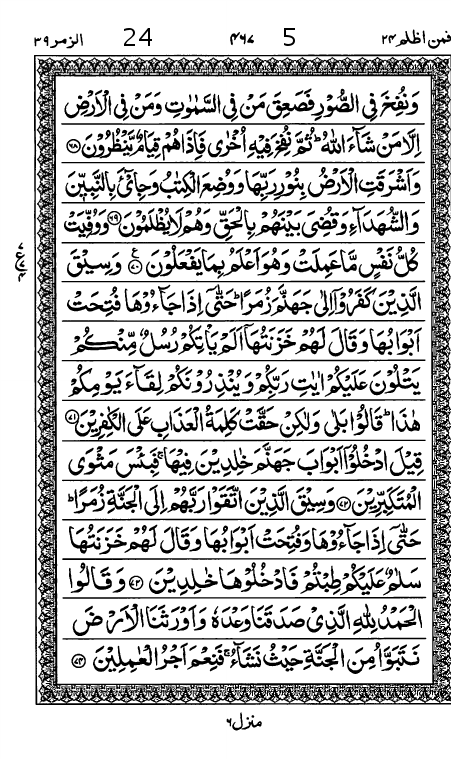 فمن اظلم ۲۴ 5 ۴۶۷ 24 الزمر ۳۹
وَنُفِخَ فِی الصُّوْرِ فَصَعِقَ مَنْ فِی السَّمٰوٰتِ وَمَنْ فِی الْاَرْضِ
اِلَّا مَنْ شَآءَ اللّٰهُ ؕ ثُمَّ نُفِخَ فِیْهِ اُخْرٰی فَاِذَا هُمْ قِیَامٌ یَّنْظُرُوْنَ ﴿۶۸﴾
وَاَشْرَقَتِ الْاَرْضُ بِنُوْرِ رَبِّهَا وَوُضِعَ الْكِتٰبُ وَجِایْٓءَ بِالنَّبِیّٖنَ
وَالشُّهَدَآءِ وَقُضِیَ بَیْنَهُمْ بِالْحَقِّ وَهُمْ لَا یُظْلَمُوْنَ ﴿۶۹﴾ وَوُفِّیَتْ
كُلُّ نَفْسٍ مَّا عَمِلَتْ وَهُوَ اَعْلَمُ بِمَا یَفْعَلُوْنَ ﴿۷۰﴾ وَسِیْقَ
الَّذِیْنَ كَفَرُوْۤا اِلٰی جَهَنَّمَ زُمَرًا ؕ حَتّٰۤی اِذَا جَآءُوْهَا فُتِحَتْ
اَبْوَابُهَا وَقَالَ لَهُمْ خَزَنَتُهَاۤ اَلَمْ یَاْتِكُمْ رُسُلٌ مِّنْكُمْ
یَتْلُوْنَ عَلَیْكُمْ اٰیٰتِ رَبِّكُمْ وَیُنْذِرُوْنَكُمْ لِقَآءَ یَوْمِكُمْ
هٰذَا ؕ قَالُوْا بَلٰی وَلٰكِنْ حَقَّتْ كَلِمَةُ الْعَذَابِ عَلَی الْكٰفِرِیْنَ ﴿۷۱﴾
قِیْلَ ادْخُلُوْۤا اَبْوَابَ جَهَنَّمَ خٰلِدِیْنَ فِیْهَا ۚ فَبِئْسَ مَثْوَی
الْمُتَكَبِّرِیْنَ ﴿۷۲﴾ وَسِیْقَ الَّذِیْنَ اتَّقَوْا رَبَّهُمْ اِلَی الْجَنَّةِ زُمَرًا ؕ
حَتّٰۤی اِذَا جَآءُوْهَا وَفُتِحَتْ اَبْوَابُهَا وَقَالَ لَهُمْ خَزَنَتُهَا
سَلٰمٌ عَلَیْكُمْ طِبْتُمْ فَادْخُلُوْهَا خٰلِدِیْنَ ﴿۷۳﴾ وَقَالُوا
الْحَمْدُ لِلّٰهِ الَّذِیْ صَدَقَنَا وَعْدَهٗ وَاَوْرَثَنَا الْاَرْضَ
نَتَبَوَّاُ مِنَ الْجَنَّةِ حَیْثُ نَشَآءُ ۚ فَنِعْمَ اَجْرُ الْعٰمِلِیْنَ ﴿۷۴﴾
منزل ۶